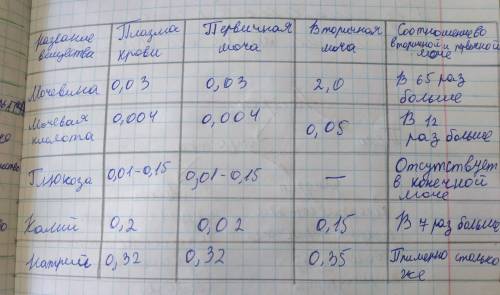 Название вещества | Плазма крови | Первичная моча | Вторичная моча | Соотношение во вторичной и первичной моче
Мочевина | 0,03 | 0,03 | 2,0 | В 65 раз больше
Мочевая кислота | 0,004 | 0,004 | 0,05 | В 12 раз больше
Глюкоза | 0,01-0,15 | 0,01-0,15 | — | Отсутствует в конечной моче
Калий | 0,2 | 0,02 | 0,15 | В 7 раз больше
Натрий | 0,32 | 0,32 | 0,35 | Примерно столько же